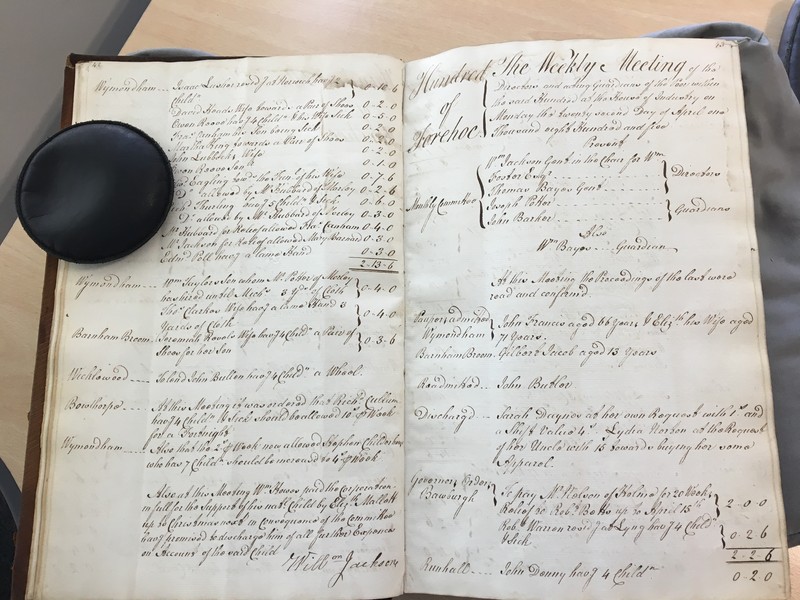 Wymondham ... Isaac Lawson resid.g at Norwich hav.g 2 Child.n 0-10-6
David Hunds Wife toward.s a Pair of Shoes 0-2-0
Owen Reeve hav.g 4 Child.n & his Wife Sick 0-5-0
Fra.s Farnham his Son being Sick 0-2-0
towards a Pair of Shoes 0-2-0
John Lubbock's Wife 0-2-0
0-1-0
Eagling tow.ds the of his Wife 0-7-6
D.o allowed by M.r Hubbard of 0-2-6
Thurling hav.g 5 Child.n & Sick 0-6-0
D.o allow.d by M.r Hubbard of 0-3-0
M.r Hubbard for Relief allowed Fra.s Farnham 0-4-0
M.r Jackson for Relief allowed Mary Barnard 0-3-0
Edm.d Poll hav.g a lame Hand 0-3-0
2-13-6
Wymondham ... W.m Taylors Son whom M.r Potter of
has hired until Mich.s 3 Y.ds of Cloth 0-4-0
Tho.s Clarkes Wife hav.g a lame Hand 3
Yards of Cloth 0-4-0
Barnham Broom. Jeremiah Revels Wife hav.g 4 Child.n a Pair of
Shoes for her Son 0-3-6
Wicklewood .... To lend John Bullen hav.g 4 Child.n a Wheel.
Bowthorpe .... At this Meeting it was ordered that Rich.d
hav.g 4 Child.n & Sick should be allowed 10.s P Week
for a Fortnight
Wymondham ... Also that the 2.s P Week now allowed Stephen Childerhouse
who has 7 Child.n should be increased to 4.s P Week
Also at this Meeting W.m Howes paid the Corporation
in full for the Support of his nat.l Child by Eliz.th Mallett
up to Christmas next in Consequence of the Committee
hav.g promised to discharge him of all further Expences
on Account of the said Child
Will.m Jackson
Hundred of Forehoe
The Weekly Meeting of the
Directors and acting Guardians of the Poor within
the said Hundred at the House of Industry on
Monday the twenty second Day of April one
Thousand eight Hundred and five
Present
Weekly Committee
W.m Jackson Gent in the Chair for W.m
Foster Esq.r
Thomas Bayes Gent
Directors
Joseph Potter
John Barker
Guardians
Also
W.m Bayes .... Guardian
At this Meeting the Proceedings of the last were
read and confirmed.
Paupers admitted
Wymondham John Francis aged 66 Years & Eliz.th his Wife aged
71 Years.
Barnham Broom. Gilbert Jacob aged 13 Years
Readmitted .. John Butler
Discharg.d .... Sarah at her own Request with 1.s and
a Shift Value 4.s Lydia Norton at the Request
of her Uncle with 15.s towards buying her some
Apparel.
Governors Orders
Bawburgh To pay M.r of for 20 Weeks
Relief to Rob.t Betts up to April 15.th 2-0-0
Rob.t Warren resid.g at Lyng hav.g 4 Child.n
& Sick 0-2-6
2-2-6
Runhall .... John Denny hav.g 4 Child.n 0-2-0